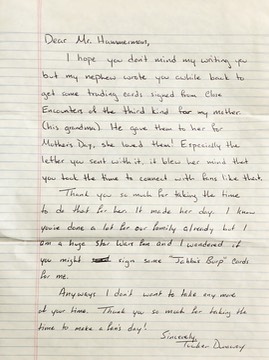 Dear Mr. Hummermann,
I hope you don't mind my writing you
but my nephew wrote you awhile back to
get some trading cards signed from Close
Encounters of the third kind for my mother
(his grandma). He gave them to her for
Mothers Day, she loved them! Especially the
letter you sent with it, it blew her mind that
you took the time to connect with fans like that.
Thank you so much for taking the time
to do that for her. It made her day. I know
you've done a lot for our family already but I
am a huge Star Wars fan and I wondered if
you might sign some "Jabba's Barge" cards
for me.
Anyways I don't want to take any more
of your time. Thank you so much for taking the
time to make a fan's day!
Sincerely,
Tucker Dunaway